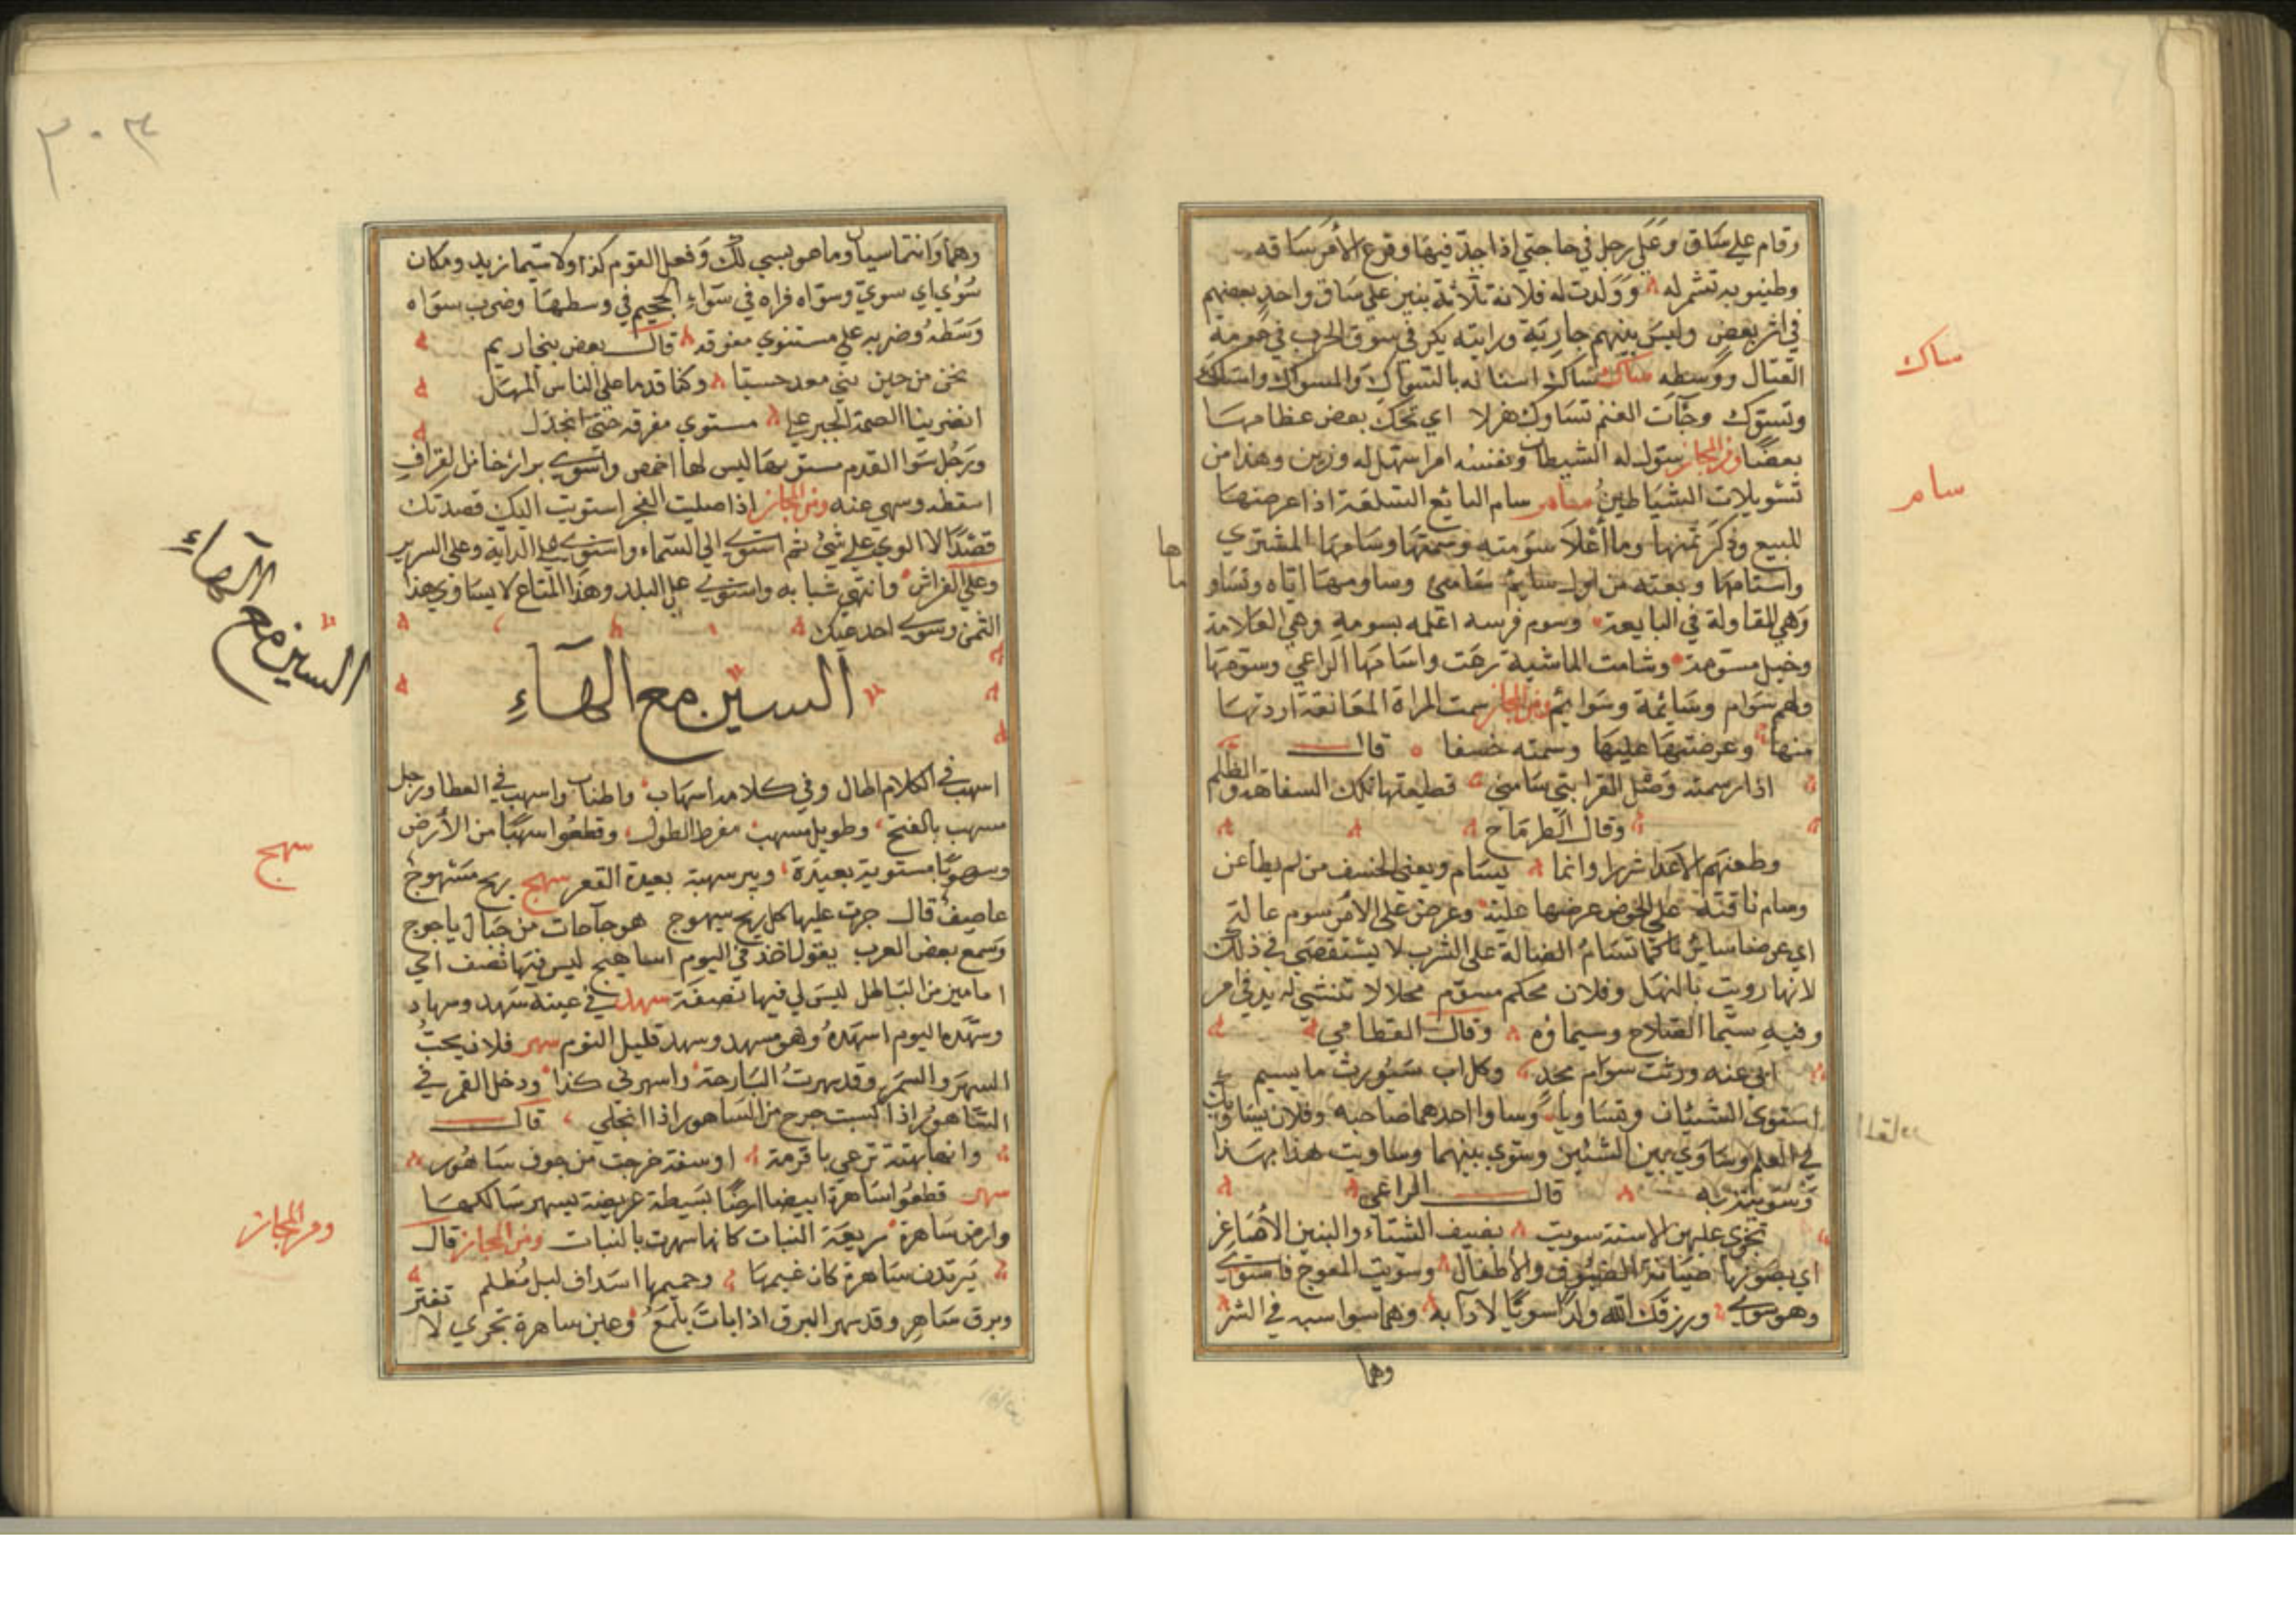 وقام على ساق وعلى رجل في حاجتي اذا جدّ فيها وقرع الأمر ساقه
وطنبوبه تشمر له وولدت له فلانة ثلاثة بنين على ساق واحد بعضهم
في اثر بعض وليس بينهم جارية ورايته يكر في سوق الحرب في حومة
القتال ووسطه ساك ساك اسنانه بالسواك والمسواك واستاك
وتسوك وجآت الغنم تساوك هزلا اي تحك بعض عظامها
بعضا ومن المجاز سول له الشيطان ونفسه امرا سهل له وزين وهذا من
تسويلات الشياطين سام سام البائع السلعة اذا عرضها
للبيع وذكر ثمنها وما أغلا سومته وسمتها وسامها المشتري
واستامها وبعته من اول سايم سامني وساومها اياه وتساو
وهي المقاولة في المبايعة وسوم فرسه اعلمه بسومه وهي العلامة
وخيل مسومة وسامت الماشية رعت واسامها الراعي وسومها
ولهم سوام وسائمة وسوايم ومن المجاز سمت المراة المعانقة اردتها
منها وعرضتها عليها وسمته خسفا قال
اذا رسمته وصل القرابة سامني قطيعتها تلك السفاهة والظلم
وقال الطرماح
وطعنهم الاعدا شزرا وانما يسام ويعني الخسف من لم يطاعن
وسام ناقته على الحوض عرضها عليه وعرض على الامر سوم عالة
اي عرضا سابريا كما تسام الضالة على الشرب لا يستقصى في ذلك
لانها رويت بالنهل وفلان محكم مسوم محلا لا تنثني له يد في امر
وفيه سيما الصلاح وسيماؤه وقال القطامي
ابي عنه ورثت سوام مجد وكل اب سيورث ما يسيم
استوى الشيئان وتساويا وساوا احدهما صاحبه وفلان يساويك
في العلم وساوى بين الشيئين وسوى بينهما وساويت هذا بهذا
وسويته به قال الراعي
تجري عليهن الاسنة سويت بضيف الشتاء والبنين الأصاغر
اي يصونها صيانة الضيوف والأطفال وسويت المعوج فاستوى
وهو سوي ورزقك الله ولدا سويا لا دآ به وهما سواسيه في الشر
وهما
ساك
سام
ها
ما
وهما وانتما سيان وما هو بسي لك وفعل القوم كذا ولا سيما زيد ومكان
سوى اي سوي وسواه فراه في سواء الجحيم في وسطها وضرب سواه
وسطه وضربه على مستوي مفرقه قال بعض بنجاريم
نحن من حين بني معد حسبا وكنا قدما على الناس المهل
انضربنا الصمة الخير على مستوي مفرقه حتى انجدل
ورجل سوا القدم مستو بها ليس لها اخمص واسوى برازخا من القراف
اسقطه وسهى عنه ومن المجاز اذا صليت الفجر استويت اليك قصدتك
قصدا لا الوي على شئ ثم استوى الى السماء واستوى على الدابة وعلى السرير
وعلى الفراش وانتهى شبابه واستوى على البلد وهذا المتاع لا يساوي هذا
الثمن وسوى احد عينيك
السين مع الهاء
اسهب في الكلام اطال وفي كلامه أسهاب واطناب واسهب في العطا ورجل
مسهب بالفتح وطويل مسهب مفرط الطول وقطعوا سهبا من الأرض
وسهوبا مستوية بعيدة وبير سهبة بعيدة القعر سهج ريح سهوج
عاصيف قال جرت عليها كل ريح سيهوج هوجآ جآت من جبال ياجوج
وسمع بعض العرب يقول اخذ في اليوم اساهيج ليس فيها نصف اي
اماميز من الباطل ليس لي فيها نصفة سهد في عينه سهد وسهاد
وسهده اليوم اسهده وهو مسهد وسهد قليل النوم سهر فلان يحب
السهر والسمر وقد سهرت البارحة واسهرني كذا ودخل القمر في
الساهور اذا اكسبت خرج من الساهور اذا انجلى قال
وانها بهتة ترعى باقرمة او سفتة خرجت من جوف ساهور
سهر قطعوا ساهرة ابيضا ارضا بسيطة عريضة يسهر سالكها
وارض ساهرة سريعة النبات كانها سهرت بالنبات ومن المجاز قال
يرتدن ساهرة كان غميمها وحميمها اسداف ليل مظلم
وبرق ساهر وقد سهر البرق اذا بات يلمع وعين ساهرة تجري لا تفتر
السين مع الهاء
سهج
ومن المجاز
٣٠٣